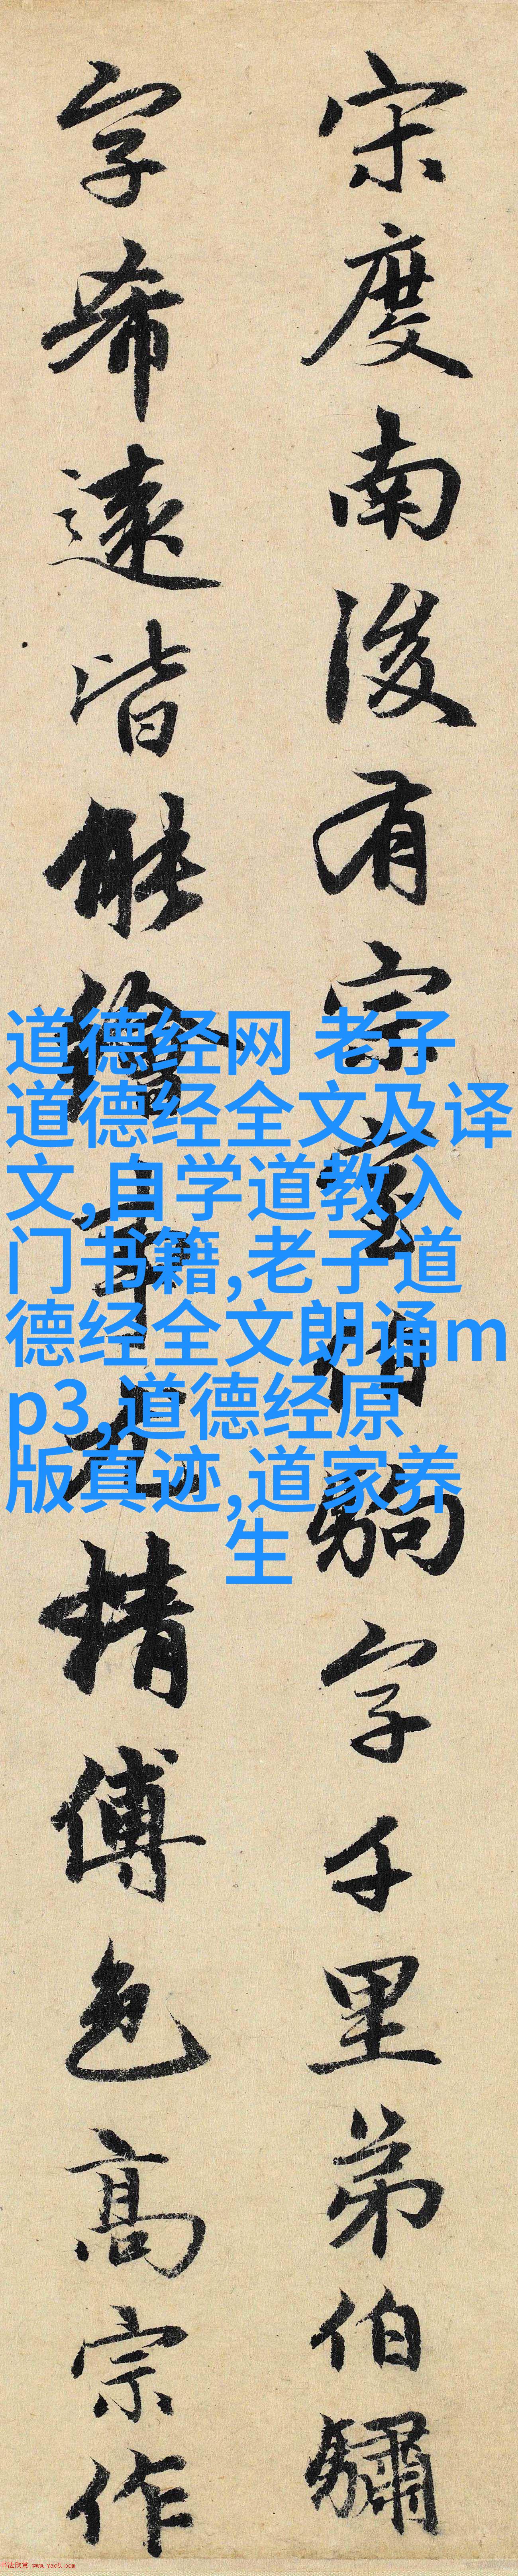 宋度南後有宗室伯駒字千里弟伯驌
字希遠皆能繪事尤精傅色高宗作
道德经网 老子
道德经全文及译
文,自学道教入
门书籍,老子道
德经全文朗诵m
p3,道德经原
版真迹,道家养
生
书法欣赏 www.yac8.com